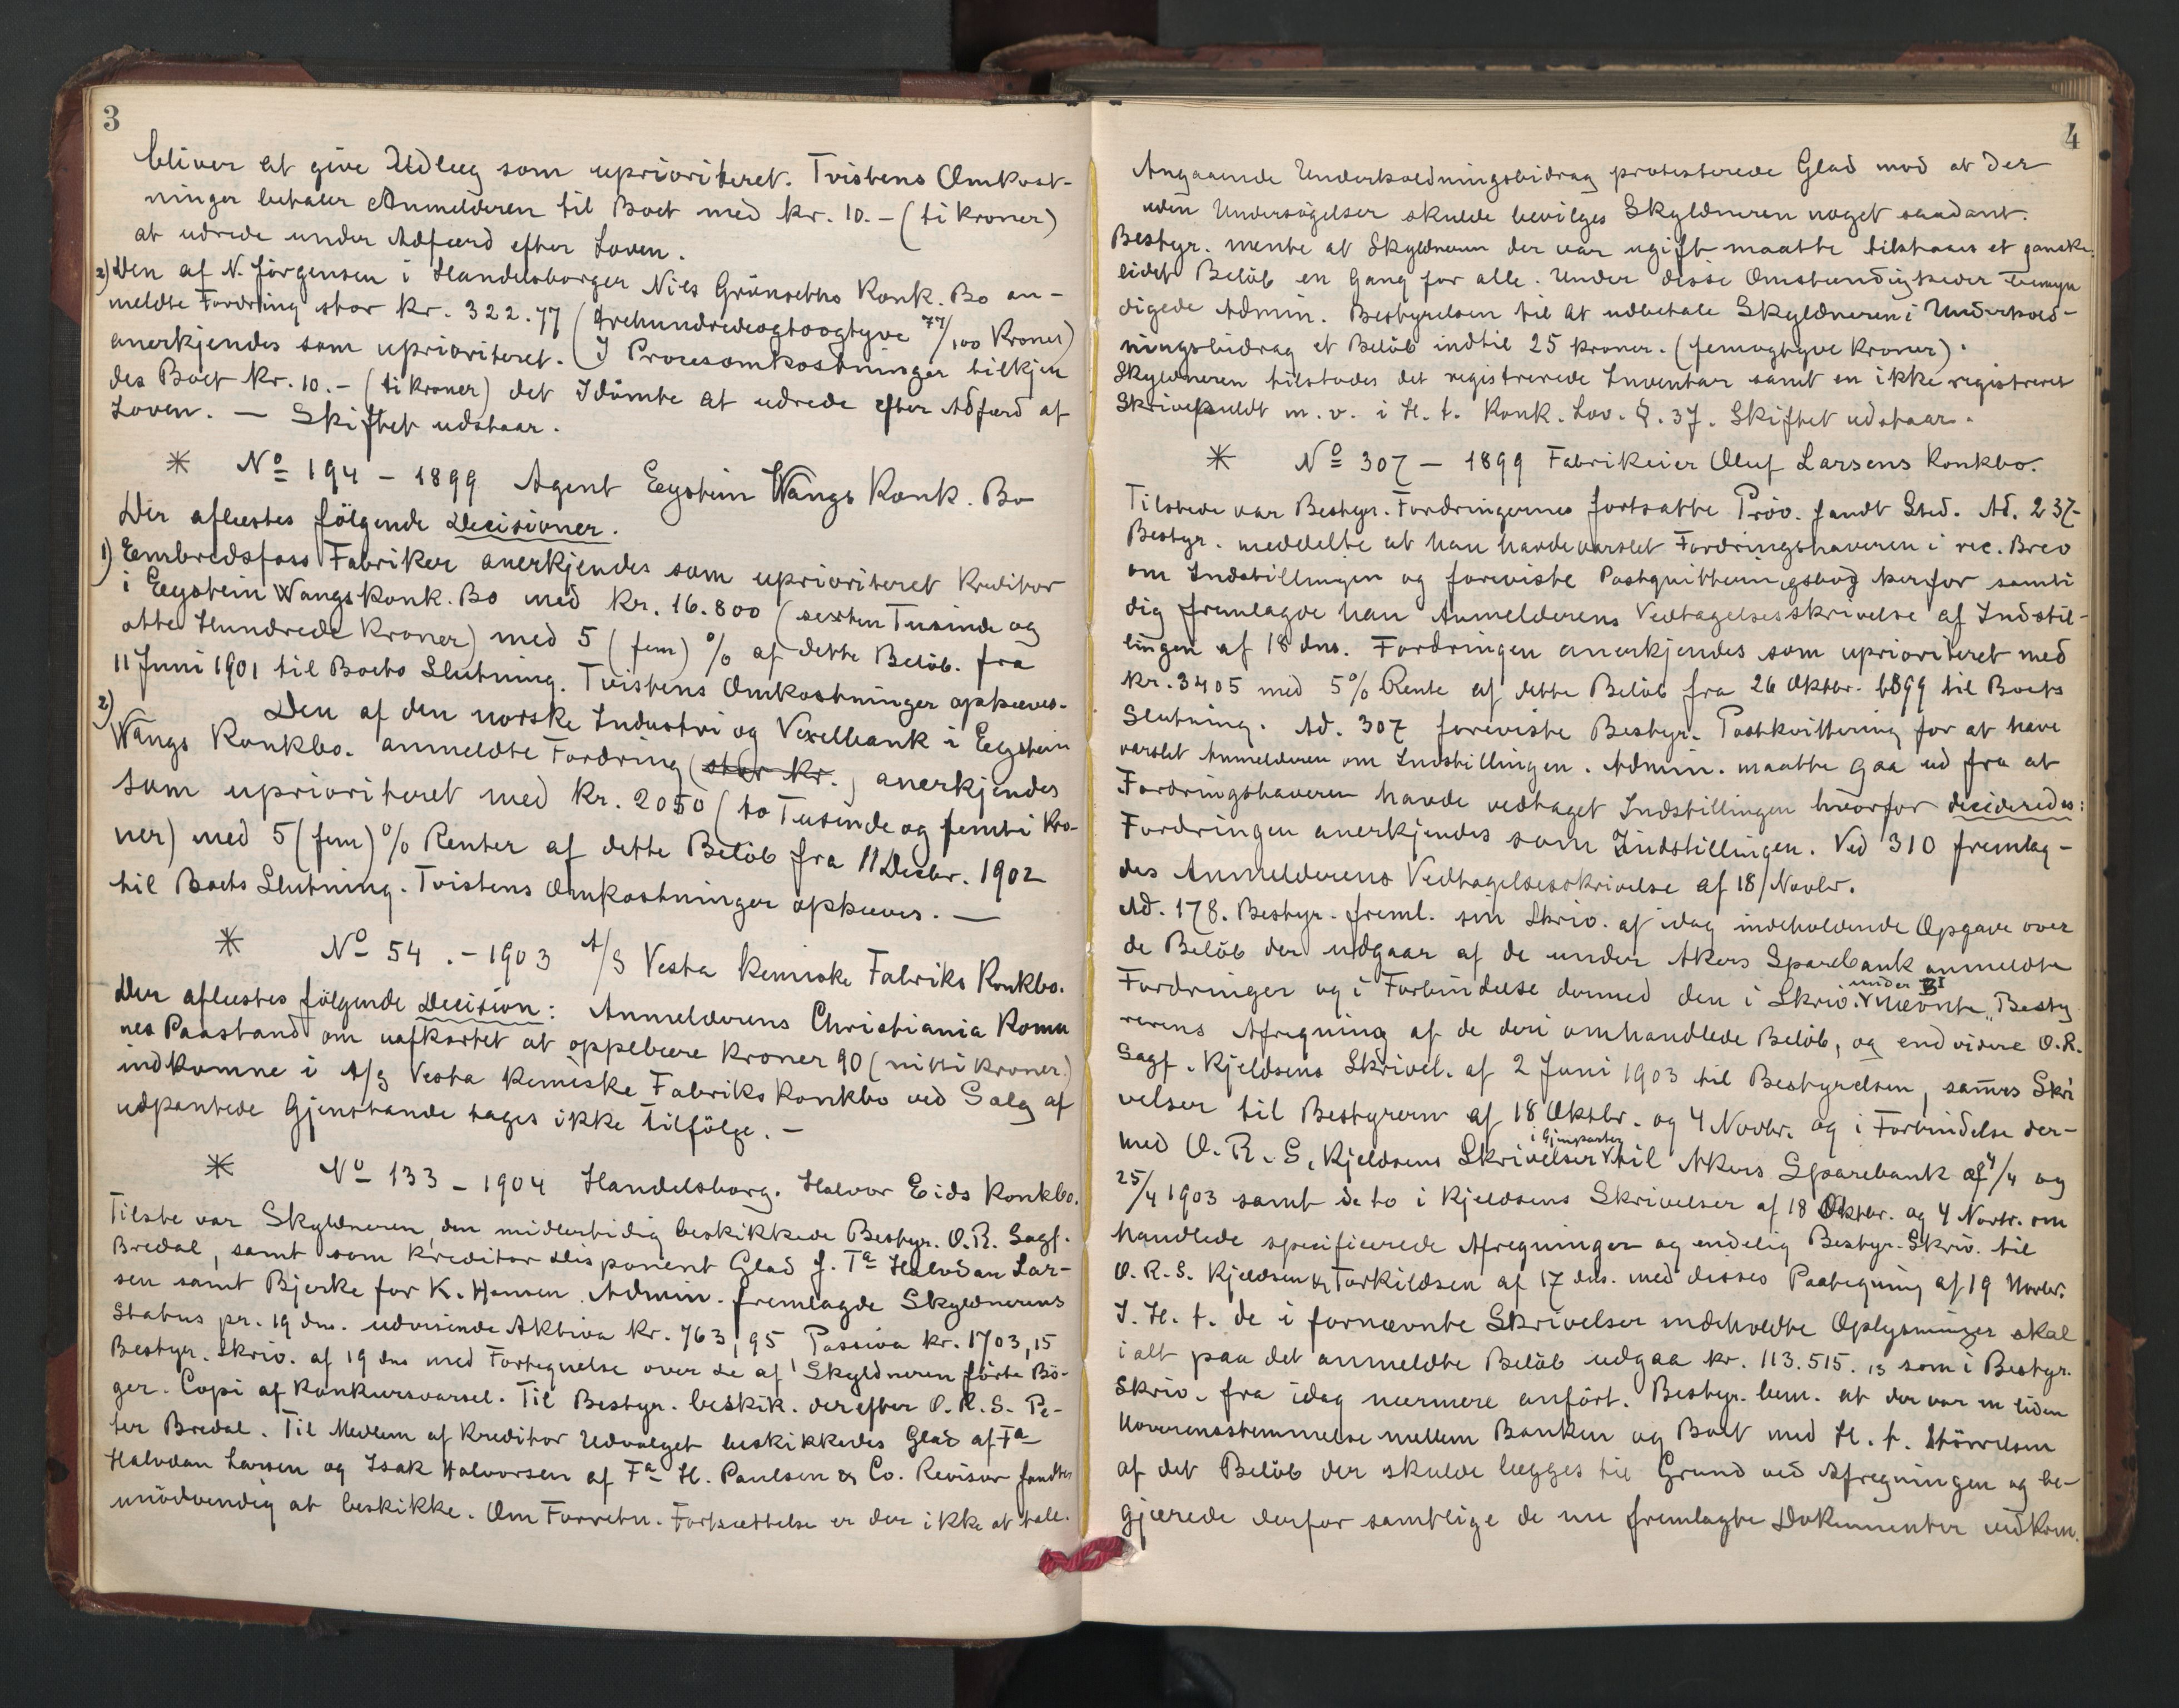 3
bliver at give Udlæg som uprioriteret. Tvistens Omkost-
ninger betaler Anmelderen til Boet med kr. 10.- (ti kroner)
at udrede under Adfærd efter Loven.
2) Den af N. Jörgensen i Handelsborger Niels Grönseths Konk. Bo an-
meldte Fordring stor kr. 322.77 (trehundredeogtoogtyve 77/100 Kroner)
anerkjendes som uprioriteret. I Procesomkostninger tilkjen
des Boet kr. 10.- (ti kroner) det Idömte at udrede efter Adfærd af
Loven. — Skiftet udstaar.
* No 194 - 1899 Agent Eystein Wangs Konk. Bo
Der aflæstes fölgende Decisioner.
1) Embredsfoss Fabriker anerkjendes som uprioriteret Kreditor
i Eystein Wangs Konk. Bo med Kr. 16.800 (sexten Tusinde og
otte Hundrede Kroner) med 5 (fem) % af dette Belöb. fra
11 Juni 1901 til Boets Slutning. Tvistens Omkostninger ophæves.
2) Den af den norske Industri og Vexelbank i Eystein
Wangs Konkbo. anmeldte Fordring (stor kr.) anerkjendes
som uprioriteret med Kr. 2050 (to Tusende og femti Kro-
ner) med 5 (fem) % Renter af dette Belöb fra 11 Decbr. 1902
til Boets Slutning. Tvistens Omkostninger ophæves. —
* No 54.- 1903 A/S Vesta Kemiske Fabriks Konkbo.
Der aflæstes fölgende Decision: Anmelderens Christiania Komu
nes Paastand om uafkortet at oppebære Kroner 90 (nitti kroner.)
indkomne i A/S Vesta Kemiske Fabriks Konkbo ved Salg af
udpantede Gjenstande tages ikke tilfölge. -
* No 133 - 1904 Handelsborg. Halvor Eids Konkbo.
Tilste var Skyldneren, den midlertidig beskikkede Bestyr. O.R. Sagf.
Bredal, samt som Kreditor Disponent Glad f. Fa Halvdan Lar-
sen samt Bjerke for K. Hansen. Admin. fremlagde Skyldnerens
Status pr. 19 dns. udvisende Aktiva Kr. 763,95 Passiva kr. 1703,15
Bestyr. Skriv. af 19 dns med Fortegnelse over de af Skyldneren förte Bö-
ger. Copi af Konkursvarsel. Til Bestyr. beskik. derefter O.R.S. Pe-
ter Bredal. Til Medlem af Kreditor Udvalget beskikkedes Glad af Fa
Halvdan Larsen og Isak Halvorsen af Fa H. Paulsen & Co. Revisor fandtes
unödvendig at beskikke. Om Forretn. Fortsættelse er der ikke at tale.
4
Angaaende Underholdningsbidrag protesterede Glad mod at der
uden Undersögelser skulde bevilges Skyldneren noget saadant.
Bestyr. mente at Skyldneren der var ugift maatte tilstaaes et ganske
lidet Belöb en Gang for alle. Under disse Omstændigheder bemyn
digede Admin. Bestyrelsen til at udbetale Skyldneren i Underhold-
ningsbidrag et Belöb indtil 25 kroner. (femogtyve Kroner).
Skyldneren tilstodes det registrerede Inventar samt en ikke registreret
Skrivepuldt m.v. i H. t. Konk. Lov. §. 37. Skiftet udstaar.
* No 307 - 1899 Fabrikeier Oluf Larsens Konkbo.
Tilstede var Bestyr. Fordringernes fortsatte Pröv. fandt Sted. Ad. 237-
Bestyr. meddelte at han havde varslet Fordringshaveren i rec. Brev
om Indstillingen og foreviste Postqvitteringsbog herfor samti
dig fremlagde han Anmelderens Vedtagelsesskrivelse af Indstil-
lingen af 18 dns. Fordringen anerkjendes som uprioriteret med
kr. 3405 med 5% Rente af dette Belöb fra 26 Oktbr. 1899 til Boets
Slutning. Ad. 307 foreviste Bestyr. Postkvittering for at have
varslet Anmelderen om Indstillingen. Admin. maatte gaa ud fra at
Fordringshaveren havde vedtaget Indstillingen hvorfor decideredes:
Fordringen anerkjendes som Indstillingen. Ved 310 fremlag-
des Anmelderens Vedtagelsesskrivelse af 18/Novbr.
Ad. 178. Bestyr. freml. sin Skriv. af idag indeholdende Opgave over
de Belöb der udgaar af de under Akers Sparebank anmeldte
under BI
Fordringer og i Forbindelse dermed den i Skriv. nævnte „Besty
rerens Afregning af de deri omhandlede Belöb, og endvidere O.R.
Sagf. Kjeldsens Skrivel. af 2 Juni 1903 til Bestyrelsen, sammes Skri
velser til Bestyreren af 18 Oktbr. og 4 Novbr. og i Forbindelse der-
i Gjenparter
med O.R.S. Kjeldsens Skrivelser til Akers Sparebank af 4/4 og
25/4 1903 samt de to i Kjeldsens Skrivelser af 18 Oktbr. og 4 Novbr. om
handlede specificerede Afregninger og endelig Bestyr. Skriv. til
O.R.S. Kjeldsen & Torkildsen af 17 dns. med disses Paategning af 19 Novbr.
I. H. t. de i fornævnte Skrivelser indeholdte Oplysninger skal
ialt paa det anmeldte Belöb udgaa kr. 113.515.13 som i Bestyr.
Skriv. fra idag nærmere anfört. Bestyr. bem. at der var en liden
Uoverensstemmelse mellem Banken og Boet med H. t. Störrelsen
af det Belöb der skulde lægges til Grund ved Afregningen og be-
gjærede derfor samtlige de nu fremlagte Dokumenter vedkom.